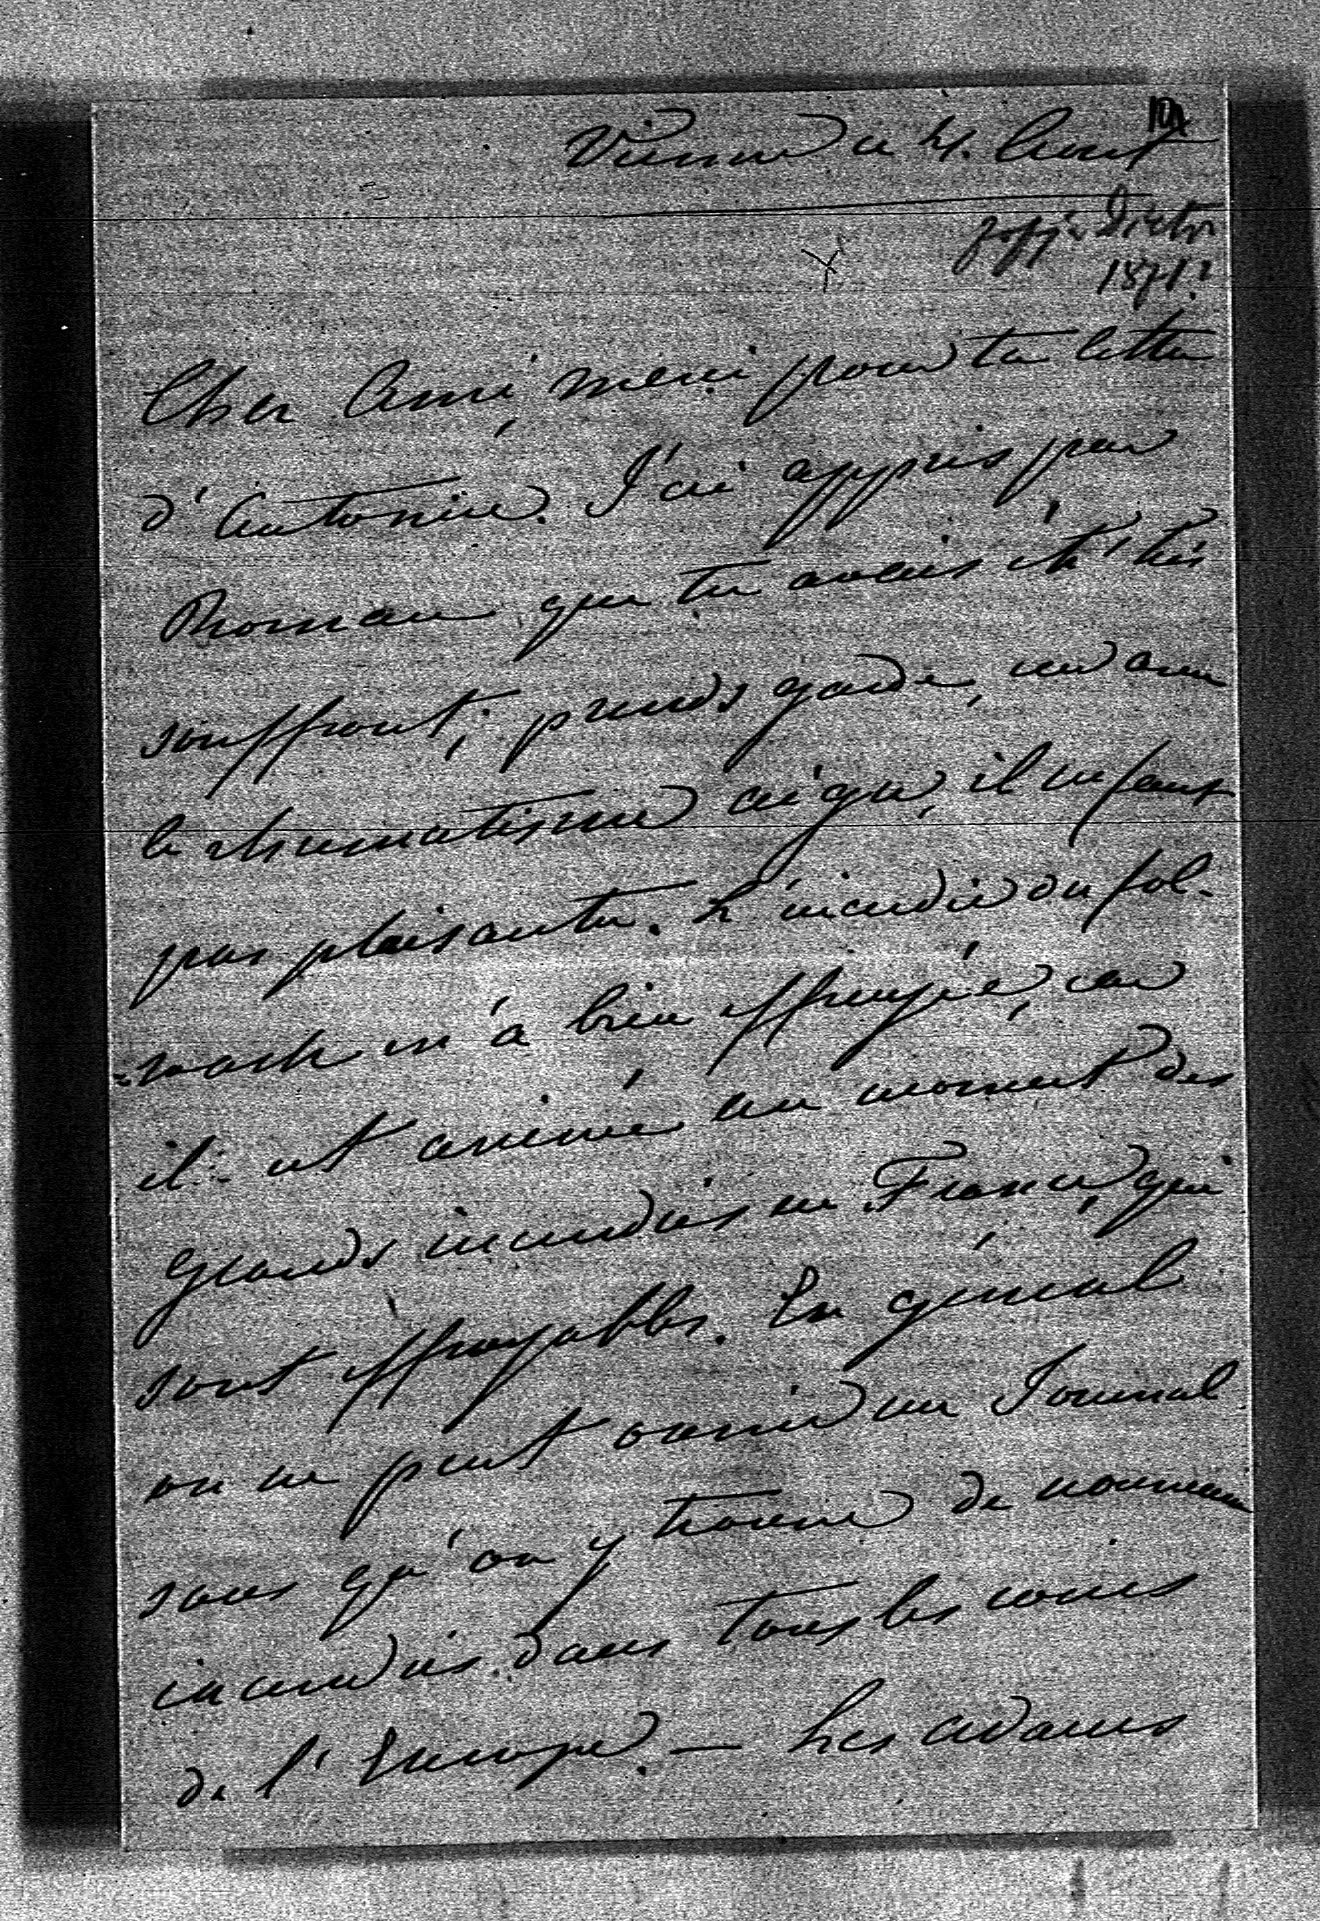 Vienne ce 4. Aout
1871?
Cher Ami, merci pour ta lettre
d'Antonin. J'ai appris par
Roman que tu avais été très
souffrant; prends garde, car avec
le rhumatisme aigu, il ne faut
pas plaisanter. L'incendie du fol-
=wark m'a bien effrayée, car
il est arrivé au moment des
grands incendies en France, qui
sont effroyables. En général
on ne peut ouvrir un Journal
sans qu'on y trouve de nouveaux
incendies dans tous les coins
de l'Europe. — Les Adams